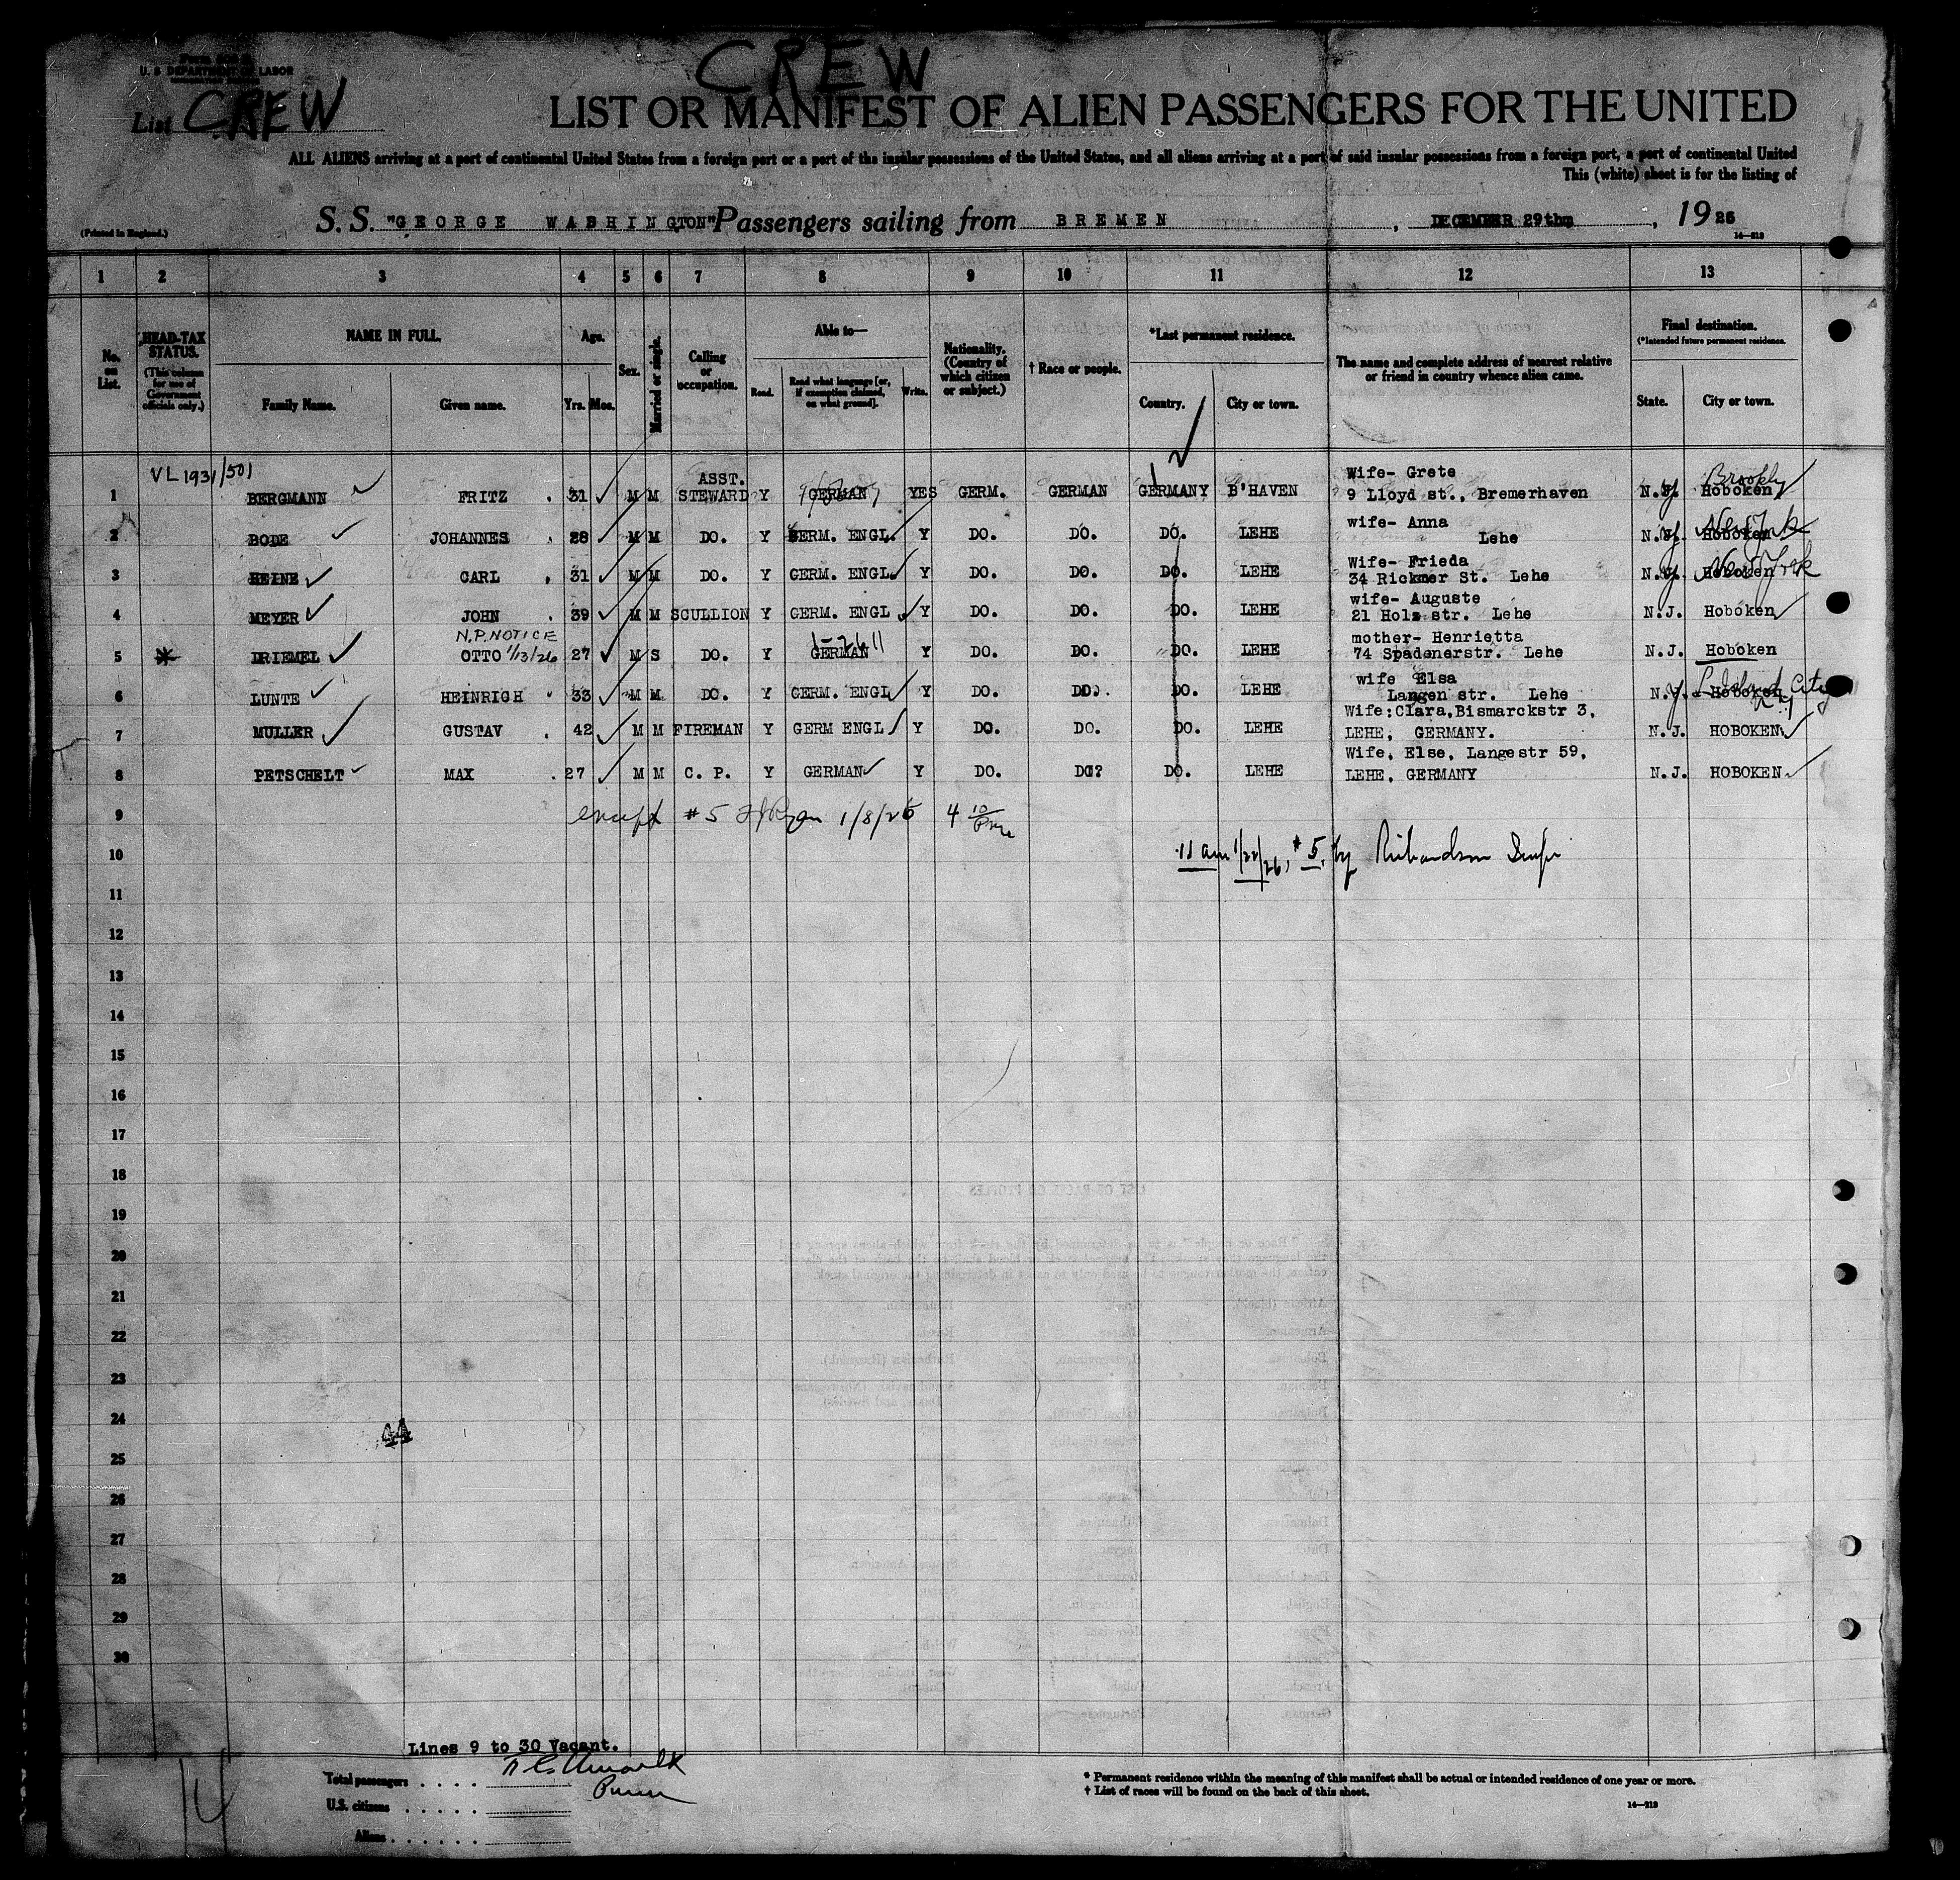 CREW
U. S DEPARTMENT OF LABOR
List CREW
LIST OR MANIFEST OF ALIEN PASSENGERS FOR THE UNITED
ALL ALIENS arriving at a port of continental United States from a foreign port or a port of the insular possessions of the United States, and all aliens arriving at a port of said insular possessions from a foreign port, a port of continental United
This (white) sheet is for the listing of
(Printed in England.)
S. S. "GEORGE WASHINGTON" Passengers sailing from BREMEN, DECEMBER 29thm, 1925
14—212
1 2 3 4 5 6 7 8 9 10 11 12 13
No. on List.
HEAD-TAX STATUS. (This column for use of Government officials only.)
NAME IN FULL.
Family Name. Given name.
Age. Yrs. Mos.
Sex.
Married or single.
Calling or occupation.
Able to—
Read. Read what language [or, if exemption claimed, on what ground]. Write.
Nationality. (Country of which citizen or subject.)
† Race or people.
*Last permanent residence.
Country. City or town.
The name and complete address of nearest relative or friend in country whence alien came.
Final destination.
(*Intended future permanent residence.
State. City or town.
VL 1931/501
1 BERGMANN FRITZ . 31 M M ASST. STEWARD Y GERMAN YES GERM. GERMAN GERMANY B'HAVEN Wife- Grete 9 Lloyd st., Bremerhaven N.Y. Hoboken Brooklyn
2 BODE JOHANNES . 28 M M DO. Y GERM. ENGL. Y DO. DO. DO. LEHE wife- Anna Lehe N.Y. Hoboken New York
3 HEINE CARL . 31 M M DO. Y GERM. ENGL. Y DO. DO. DO. LEHE Wife- Frieda 34 Rickmer St. Lehe N.Y. Hoboken New York
4 MEYER JOHN 39 M M SCULLION Y GERM. ENGL Y DO. DO. DO. LEHE wife- Auguste 21 Holz str. Lehe N.J. Hoboken
N.P. NOTICE
5 DRIEMEL OTTO 1/13/26 27 M S DO. Y GERMAN Y DO. DO. DO. LEHE mother- Henrietta 74 Spadenerstr. Lehe N.J. Hoboken
6 LUNTE HEINRIGH 33 M M DO. Y GERM. ENGL Y DO. DO. DO. LEHE wife Elsa Langen str. Lehe N.Y. Hoboken L Island City N.Y
7 MULLER GUSTAV . 42 M M FIREMAN Y GERM ENGL Y DO. DO. DO. LEHE Wife:Clara,Bismarckstr 3, LEHE, GERMANY. N.J. HOBOKEN
8 PETSCHELT MAX . 27 M M C. P. Y GERMAN Y DO. DO? DO. LEHE Wife, Else, Langestr 59, LEHE, GERMANY N.J. HOBOKEN.
9 except #5 1/8/26
10 11 am 1/22/26, #5, by Richardson
11
12
13
14
15
16
17
18
19
20
21
22
23
24
44
25
26
27
28
29
30
Lines 9 to 30 Vacant.
Total passengers . . . .
U.S. citizens . . . . .
Aliens . . . . . .
* Permanent residence within the meaning of this manifest shall be actual or intended residence of one year or more.
† List of races will be found on the back of this sheet.
14—212